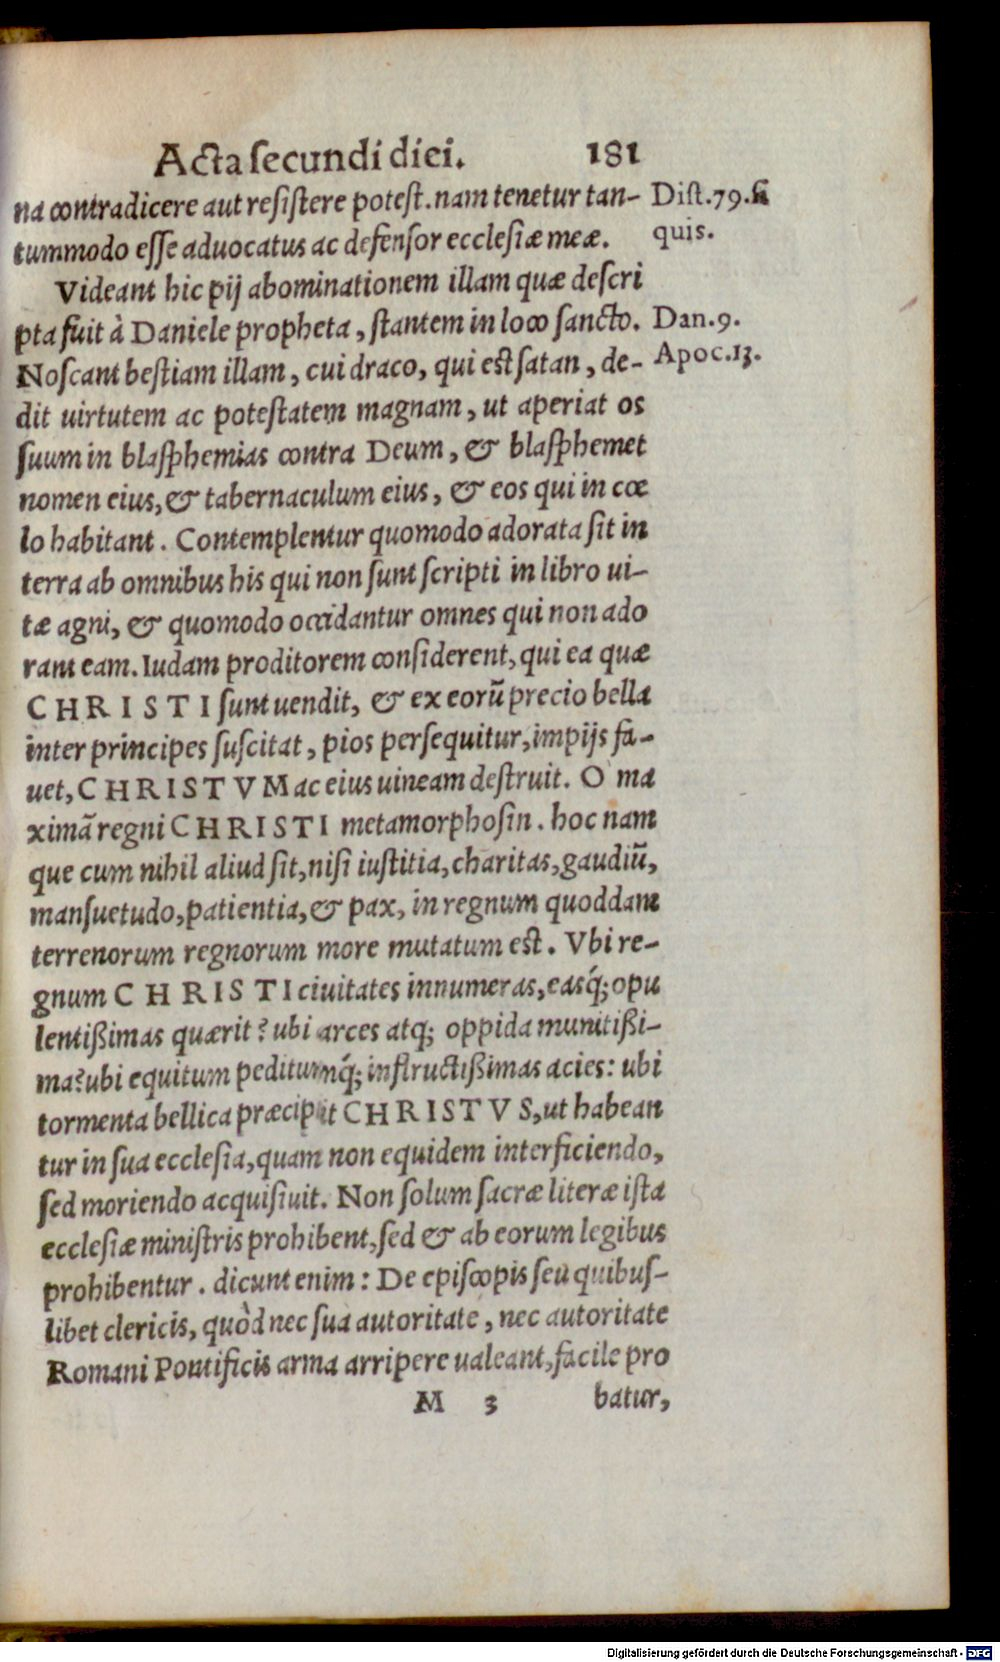 Acta secundi diei. 181
na contradicere aut resistere potest. nam tenetur tan-
Dist.79.si
tummodo esse aduocatus ac defensor ecclesiæ meæ.
quis.
Videant hic pij abominationem illam quæ descri
pta fuit à Daniele propheta, stantem in loco sancto.
Dan.9.
Noscant bestiam illam, cui draco, qui est satan, de-
Apoc.13.
dit uirtutem ac potestatem magnam, ut aperiat os
suum in blasphemias contra Deum, & blasphemet
nomen eius, & tabernaculum eius, & eos qui in cœ
lo habitant. Contemplentur quomodo adorata sit in
terra ab omnibus his qui non sunt scripti in libro ui-
tæ agni, & quomodo occidantur omnes qui non ado
rant eam. Iudam proditorem considerent, qui ea quæ
CHRISTI sunt uendit, & ex eorũ precio bella
inter principes suscitat, pios persequitur, impijs fa-
uet, CHRISTVM ac eius uineam destruit. O ma
ximã regni CHRISTI metamorphosin. hoc nam
que cum nihil aliud sit, nisi iustitia, charitas, gaudiũ,
mansuetudo, patientia, & pax, in regnum quoddam
terrenorum regnorum more mutatum est. Vbi re-
gnum CHRISTI ciuitates innumeras, easq́; opu
lentißimas quærit? ubi arces atq; oppida munitißi-
ma? ubi equitum peditumq́; instructißimas acies: ubi
tormenta bellica præcipit CHRISTVS, ut habean
tur in sua ecclesia, quam non equidem interficiendo,
sed moriendo acquisiuit. Non solum sacræ literæ ista
ecclesiæ ministris prohibent, sed & ab eorum legibus
prohibentur. dicunt enim: De episcopis seu quibus-
libet clericis, quòd nec sua autoritate, nec autoritate
Romani Pontificis arma arripere ualeant, facile pro
M 3 batur,
Digitalisierung gefördert durch die Deutsche Forschungsgemeinschaft - DFG